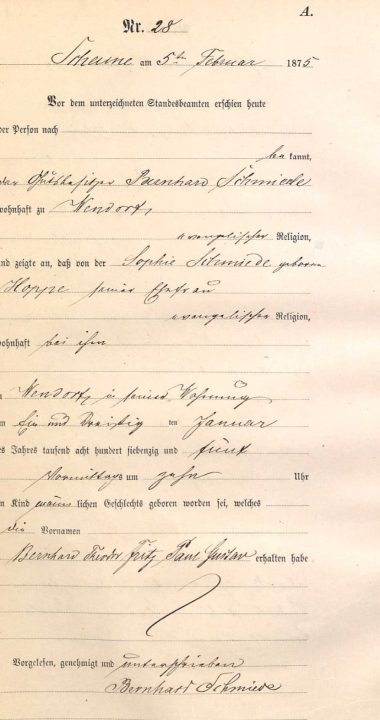 A.
Nr. 28
Scheune am 5ten Februar 1875
Vor dem unterzeichneten Standesbeamten erschien heute
der Person nach
be kannt,
der Gutsbesitzer Bernhard Schmiede
wohnhaft zu Wendorf,
evangelischer Religion,
und zeigte an, daß von der Sophie Schmiede geborene
Hoppe seiner Ehefrau
evangelischer Religion,
wohnhaft bei ihm
Wendorf, in seiner Wohnung
Ein und Dreißig ten Januar
es Jahres tausend acht hundert siebenzig und fünf
Vormittags um zehn Uhr
n Kind männ lichen Geschlechts geboren worden sei, welches
die Vornamen
Bernhard Theodor Fritz Paul Gustav erhalten habe
Vorgelesen, genehmigt und unterschrieben
Bernhard Schmiede